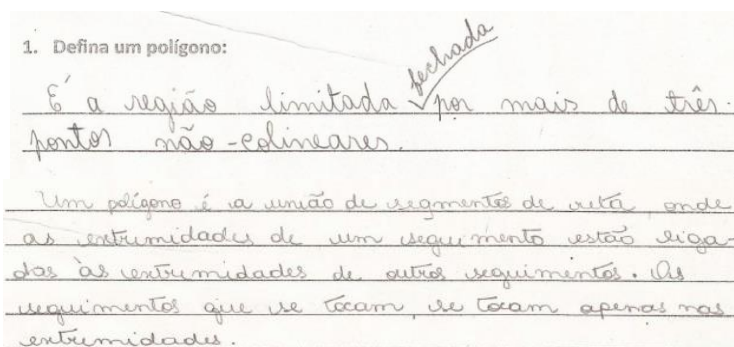 1. Defina um polígono:
fechada
É a região limitada por mais de três
pontos não-colineares.
Um polígono é a união de segmentos de reta onde
as extrimidades de um seguimento estão liga-
dos às extrimidades de outros seguimentos. Os
seguimentos que se tocam, se tocam apenas nas
extrimidades.